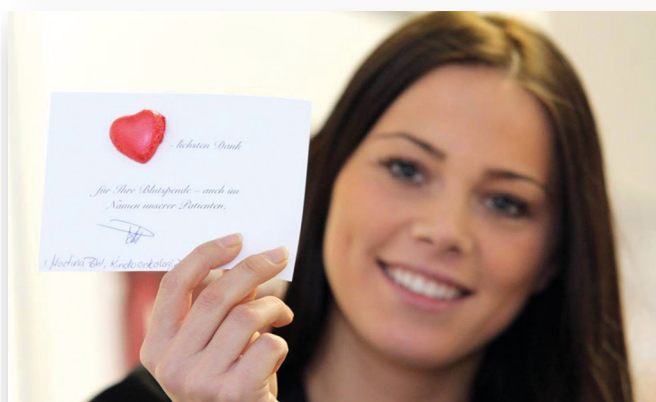 -lichsten Dank
für Ihre Blutspende – auch im
Namen unserer Patienten.
Martina